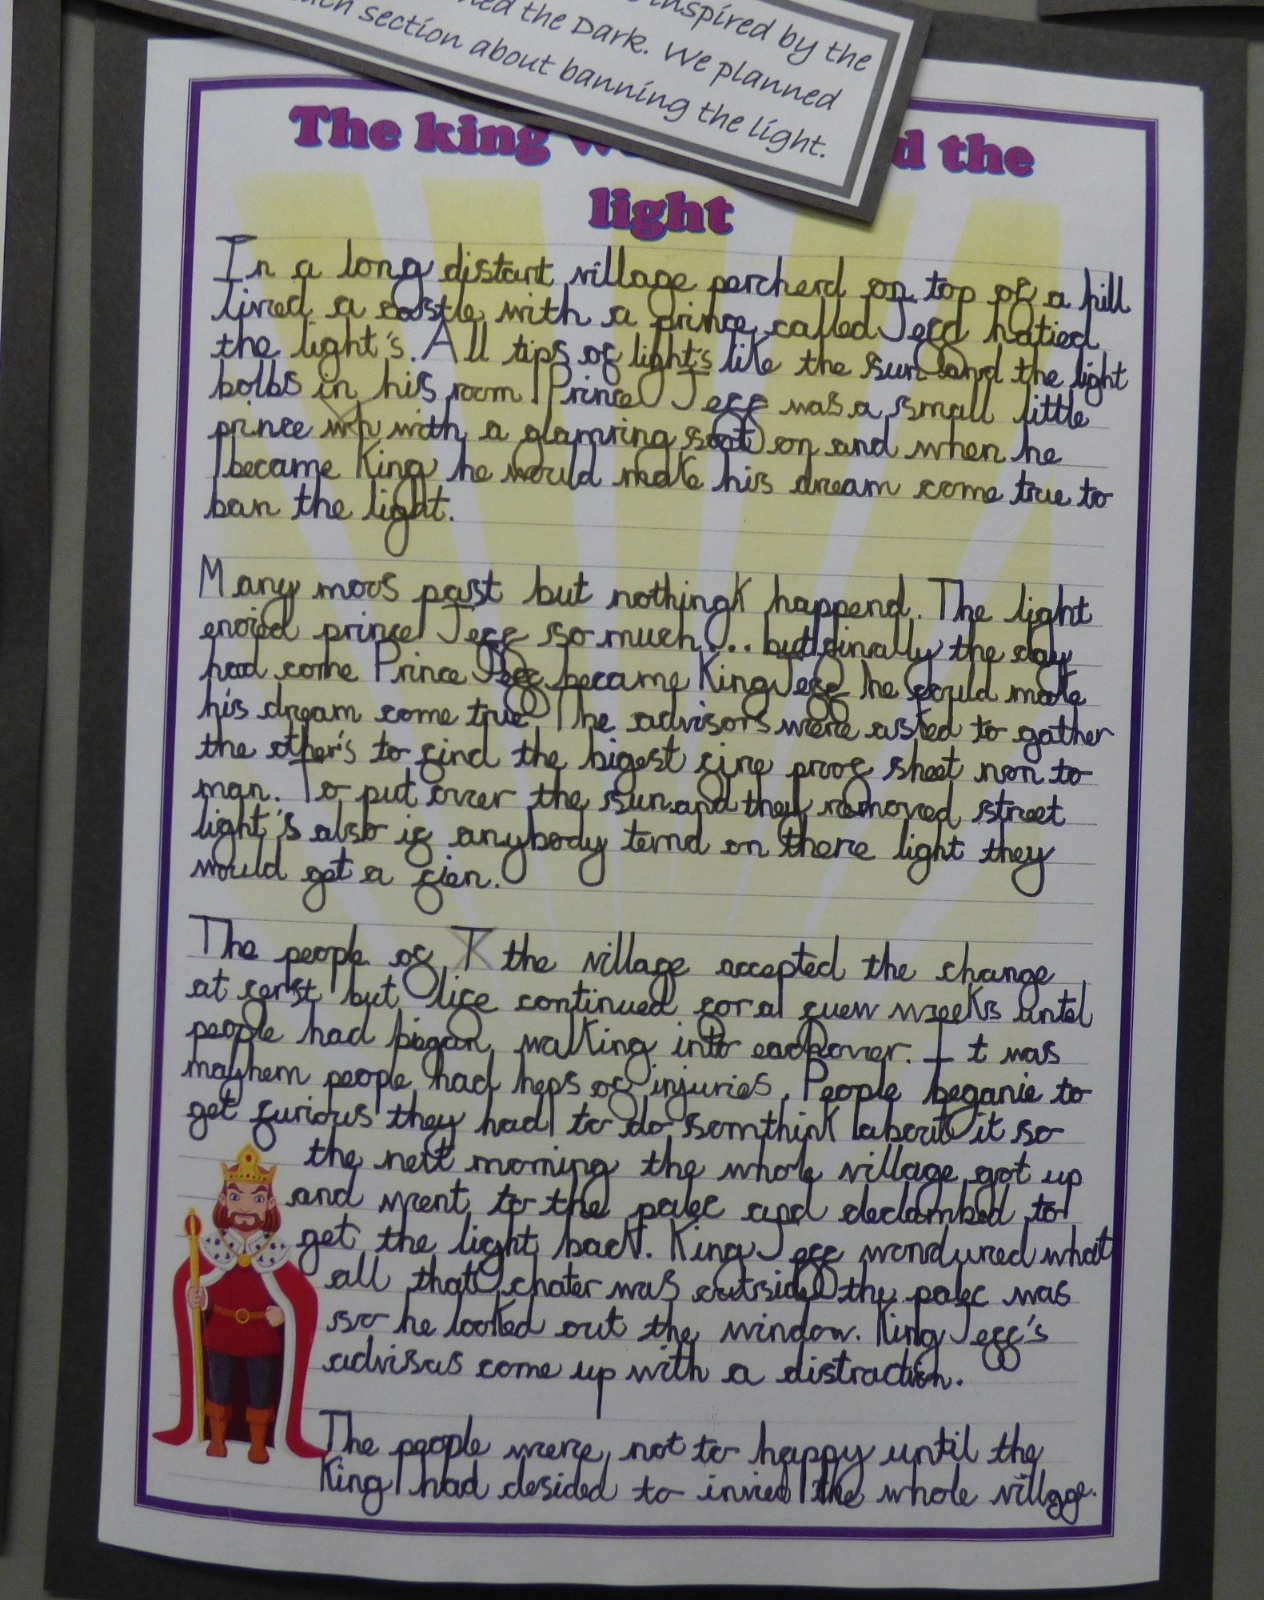 inspired by the
the Dark. We planned
section about banning the light.
The king the
light
In a long distant village percherd on top of a hill
lived a castle with a prince called Jeff hatied
the light's. All tips of light's like the sun and the light
bolbs in his room Prince Jeff was a small little
prince with a glamring soot on and when he
became King he would make his dream come true to
ban the light.
Many moos past but nothingk happend. The light
enoied prince Jeff so much... but finally the day
had come Prince Jeff became King Jeff he could make
his dream come true. The advisors were asted to gather
the other's to find the bigest fire proof sheet non to
man. To put over the sun and they removed street
light's also if anybody ternd on there light they
would get a fien.
The people of the village accepted the change
at ferst but life continued for a fuew weeks untel
people had began walking into eachover. It was
mayhem people had heps of injuries. People beganie to
get furious they had to do somthink about it so
the next morning the whole village got up
and went to the palec and declambed to
get the light back. King Jeff wondured what
all that chater was outside the palec was
so he looked out the window. King Jeff's
advisas come up with a distraction.
The people were not to happy until the
King had desided to invied the whole village.